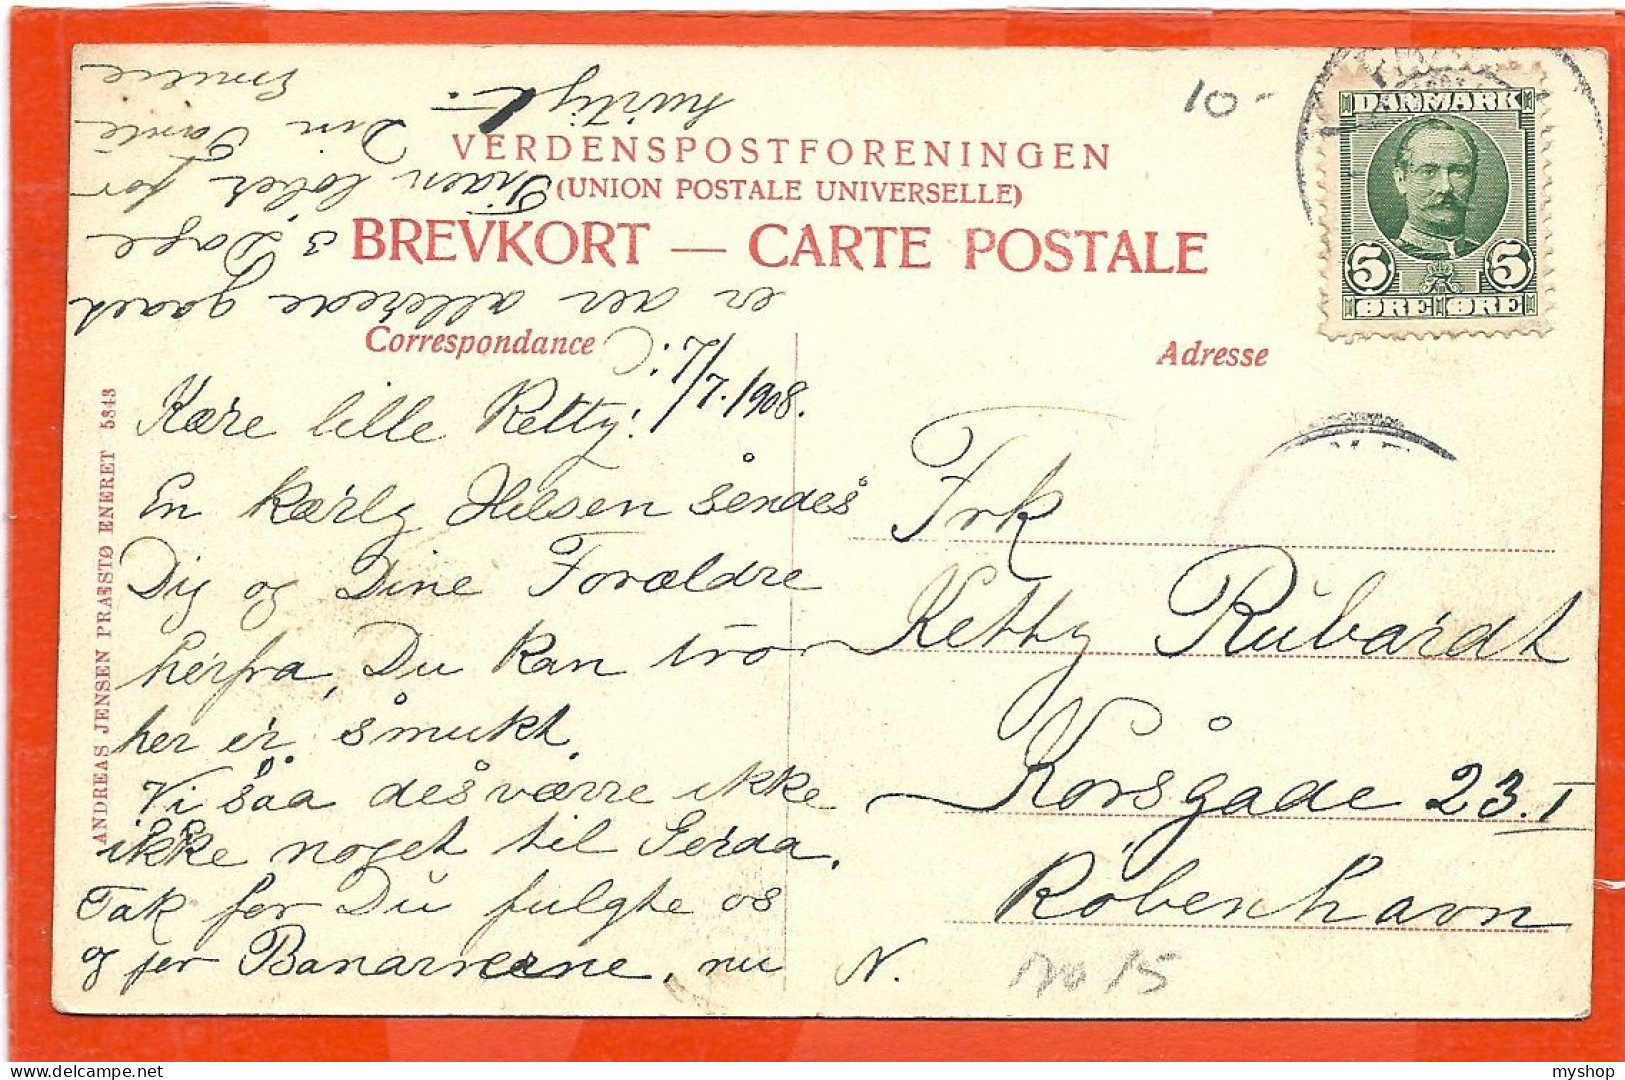 10-
DANMARK
5 5
ØRE ØRE
VERDENSPOSTFORENINGEN
(UNION POSTALE UNIVERSELLE)
BREVKORT — CARTE POSTALE
Correspondance
Adresse
ANDREAS JENSEN PRÆSTØ ENERET 5343
7/7. 1908.
Kære lille Ketty!
En kærlig Hilsen sendes
Dig og Dine Forældre
herfra, Du kan tro
her er smukt.
Vi saa desværre ikke
ikke noget til Gerda.
Tak for Du fulgte os
og for Bananerne, nu
er der allerede gaaet
3 Dage
Tiden løber for
hurtigt.
Din Tante
Emilie
Frk
Ketty Rubardt
Korsgade 23. I
København
N.
15